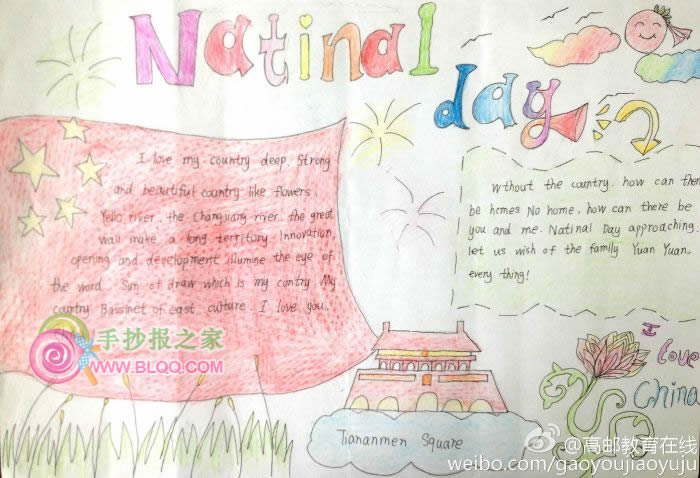 Natinal
day
I love my country deep. Strong
and beautiful country like flowers.
Yello river. the Changjiang river. the great
wall make a long territory. Innovation,
opening and development illumine the eye of
the word. Sum of draw which is my contry. My
cuntry Bassinet of east culture. I love you.
Without the country. how can ther
be homes No home, how can there be
you and me. Natinal Day approaching.
let us wish of the family Yuan Yuan.
every thing!
Tiananmen Square
I
love
China
手抄报之家
WWW.BLQQ.COM
@高邮教育在线
weibo.com/gaoyoujiaoyuju